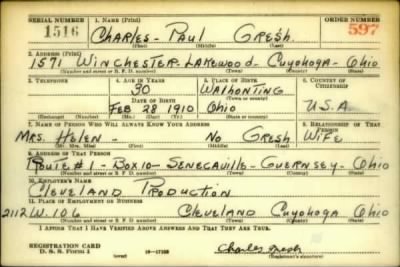 SERIAL NUMBER 1. NAME (Print) ORDER NUMBER
1516 CHARLES - PAUL GRESH. 597
(First) (Middle) (Last)
2. ADDRESS (Print)
1571 WINCHESTER - LAKEWOOD - CUYOHOGA - OHIO
(Number and street or R. F. D. number) (Town) (County) (State)
3. TELEPHONE 4. AGE IN YEARS 5. PLACE OF BIRTH 6. COUNTRY OF CITIZENSHIP
30 WALHONTING
DATE OF BIRTH (Town or county)
FEB 28 1910 OHIO U.S.A
(Exchange) (Number) (Mo.) (Day) (Yr.) (State or country)
7. NAME OF PERSON WHO WILL ALWAYS KNOW YOUR ADDRESS 8. RELATIONSHIP OF THAT PERSON
MRS. HELEN - NO GRESH WIFE
(Mr., Mrs., Miss) (First) (Middle) (Last)
9. ADDRESS OF THAT PERSON
ROUTE #1 - BOX 10 - SENECAVILLE - GUERNSEY - OHIO
(Number and street or R. F. D. number) (Town) (County) (State)
10. EMPLOYER'S NAME
CLEVELAND PRODUCTION
11. PLACE OF EMPLOYMENT OR BUSINESS
2112 W. 106 CLEVELAND CUYOHOGA OHIO
(Number and street or R. F. D. number) (Town) (County) (State)
I AFFIRM THAT I HAVE VERIFIED ABOVE ANSWERS AND THAT THEY ARE TRUE.
REGISTRATION CARD
D. S. S. Form 1 (over) Charles Gresh
(Signature)